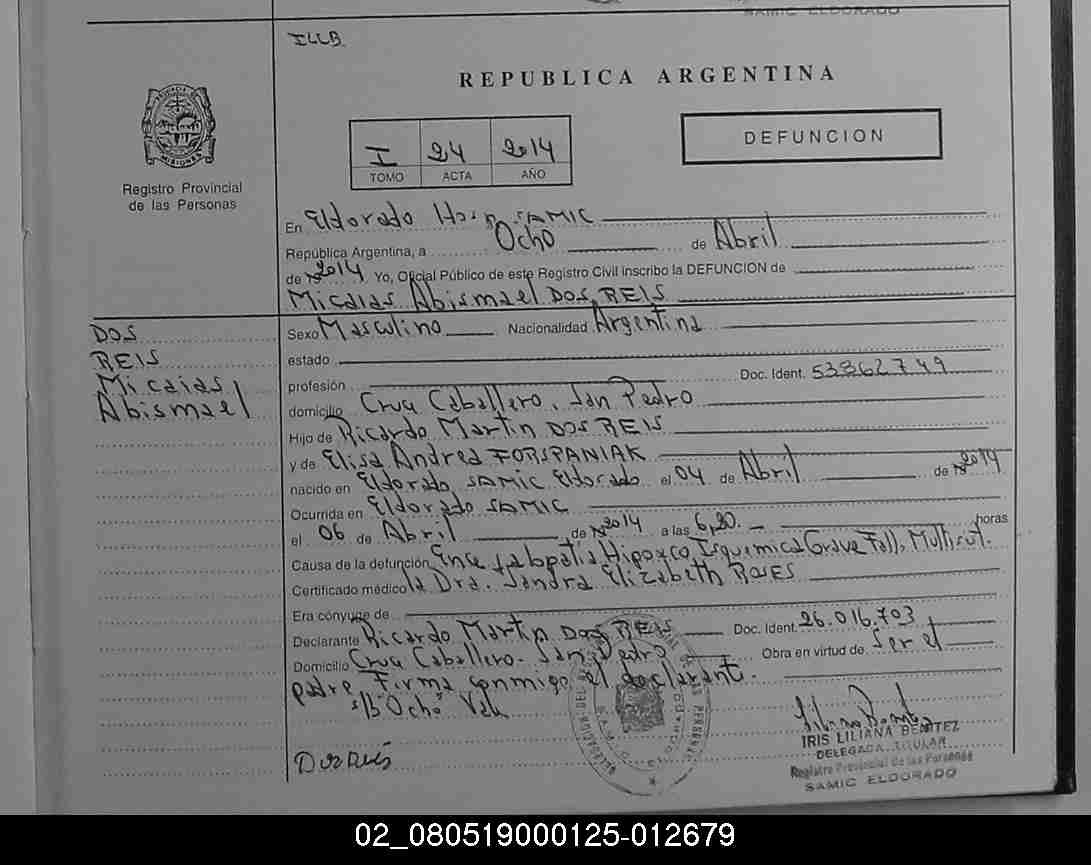 SAMIC ELDORADO
ILLB.
REPUBLICA ARGENTINA
I 24 2014
TOMO ACTA AÑO
DEFUNCION
MISIONES
Registro Provincial
de las Personas
En Eldorado Hosp. SAMIC
República Argentina, a Ocho de Abril
de 2014 Yo, Oficial Público de este Registro Civil inscribo la DEFUNCION de
Micaias Abismael DOS REIS
DOS
REIS
Micaias
Abismael
Sexo Masculino Nacionalidad Argentina
estado
profesión Doc. Ident. 53862749
domicilio Cruce Caballero. San Pedro
Hijo de Ricardo Martin DOS REIS
y de Elisa Andrea FORSPANIAK
nacido en Eldorado SAMIC Eldorado el 04 de Abril de 2014
Ocurrida en Eldorado SAMIC
el 06 de Abril de 2014 a las 6,20. horas
Causa de la defunción Hipoxico Isquemica Grave Fall. Multisist.
Certificado médico la Dra. Sandra Elizabeth
Era cónyuge de
Declarante Ricardo Martin Dos REIS Doc. Ident. 26.016.703
Domicilio Cruce Caballero. San Pedro Obra en virtud de Ser el
padre Firma conmigo el declarant.
s/b Ocho Vale
IRIS LILIANA BENITEZ
DELEGADA TITULAR
Registro Provincial de las Personas
SAMIC ELDORADO
02_080519000125-012679